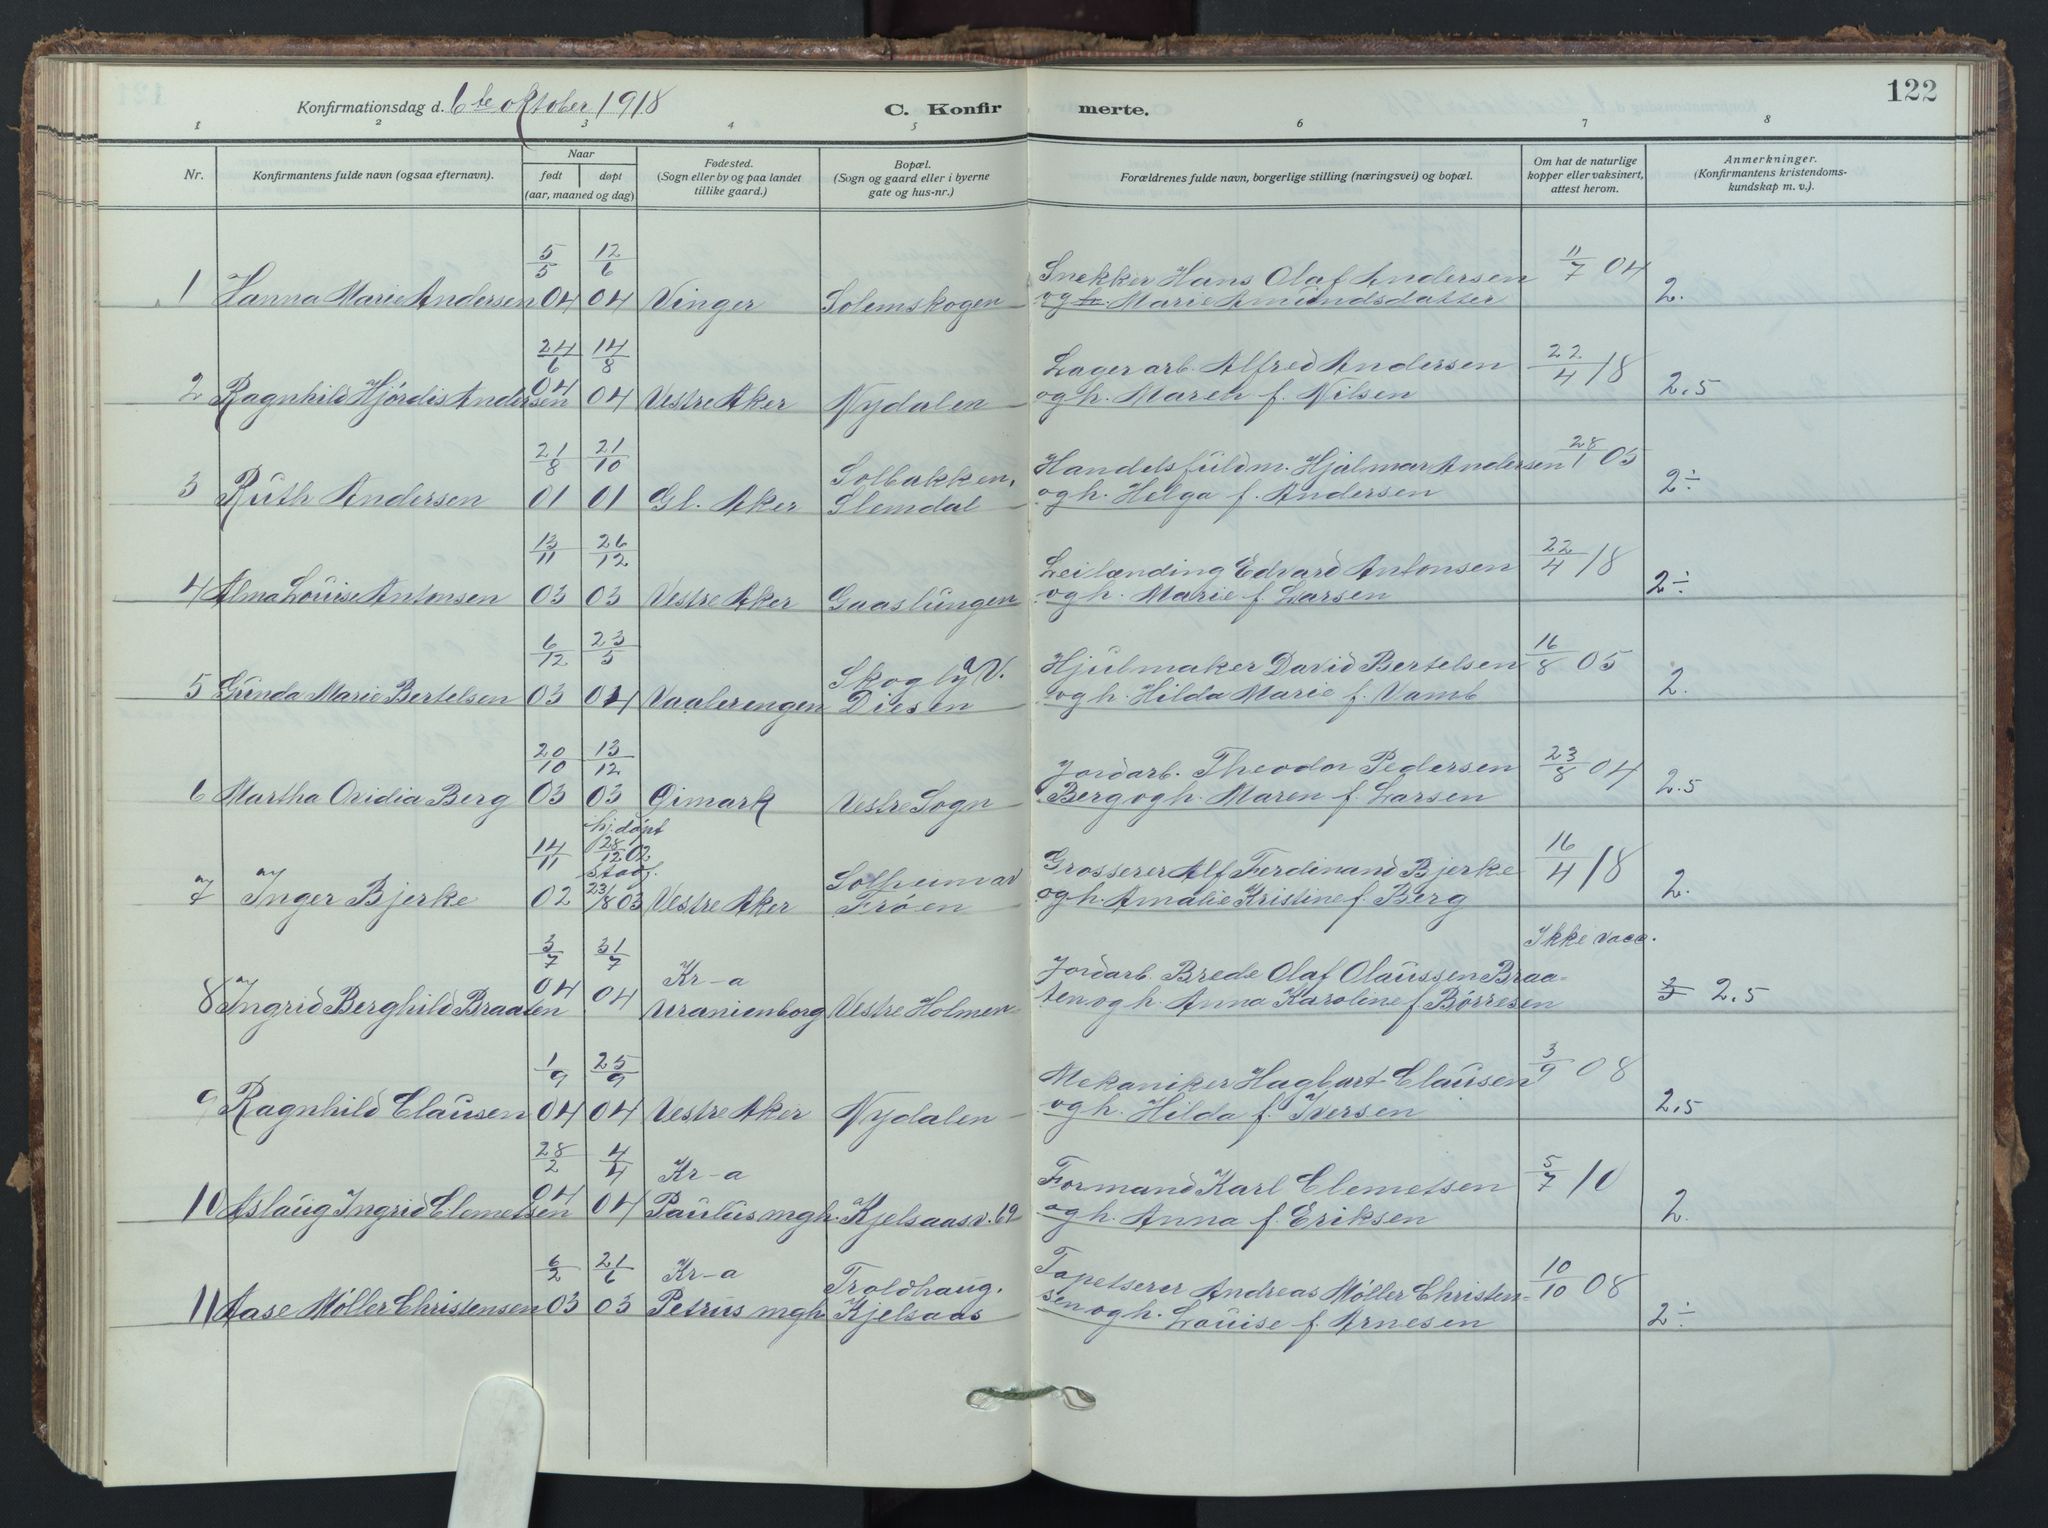 122
Konfirmationsdag d. 6te oktober 1918 C. Konfirmerte.
1 2 3 4 5 6 7 8
Nr. Konfirmantens fulde navn (ogsaa efternavn). Naar født døpt (aar, maaned og dag) Fødested. (Sogn eller by og paa landet tillike gaard.) Bopæl. (Sogn og gaard eller i byerne gate og hus-nr.) Forældrenes fulde navn, borgerlige stilling (næringsvei) og bopæl. Om hat de naturlige kopper eller vaksinert, attest herom. Anmerkninger. (Konfirmantens kristendomskundskap m. v.).
5/5 12/6 Snekker Hans Olaf Andersen 11/7 04
1 Hanna Marie Andersen 04 04 Vinger Solemskogen og h. Marie Amundsdatter 2.
24/6 14/8 Lagerarb. Alfred Andersen 22/4 18
2 Ragnhild Hjørdis Andersen 04 04 Vestre Aker Nydalen og h. Maren f. Nilsen 2.5
21/8 21/10 Solbakken, Handelsfuldm. Hjalmar Andersen 28/1 05
3 Ruth Andersen 01 01 Gl. Aker Slemdal og h. Helga f. Andersen 2÷
13/11 26/12 Leilænding Edvard Antonsen 22/4 18
4 Alma Louise Antonsen 03 03 Vestre Aker Gaaslungen og h. Marie f. Larsen 2÷
6/12 23/5 Skogly V. Hjulmaker David Bertelsen 16/8 05
5 Gunda Marie Bertelsen 03 04 Vaalerengen Diesen og h. Hilda Marie f. Vamb 2.
20/10 13/12 Jordarb. Theodor Pedersen 23/8 04
6 Martha Ovidia Berg 03 03 Gimark Vestre Sogn Berg og h. Maren f. Larsen 2.5
14/11 hj.døpt 28/12 02 stadf. Solheim av Grosserer Alf Ferdinand Bjerke 16/4 18
7 Inger Bjerke 02 23/8 03 Vestre Aker Frøen og h. Amalie Kristine f. Berg 2.
3/7 31/7 Kr-a Jordarb. Brede Olaf Olaussen Braa- Ikke vacc.
8 Ingrid Berghild Braaten 04 04 Uranienborg Vestre Holmen ten og h. Anna Karoline f. Børresen 3 2.5
1/9 25/9 Mekaniker Hagbart Clausen 3/9 08
9 Ragnhild Clausen 04 04 Vestre Aker Nydalen og h. Hilda f. Iversen 2.5
28/2 4/4 Kr-a Formand Karl Clemetsen 5/7 10
10 Aslaug Ingrid Clemetsen 04 04 Paulus mgh. Kjelsaasv. 69 og h. Anna f. Eriksen 2.
6/2 21/6 Kr-a Troldhaug. Tapetserer Andreas Møller Christen- 10/10 08
11 Aase Møller Christensen 03 03 Petrus mgh Kjelsaas sen og h. Louise f. Arnesen 2÷